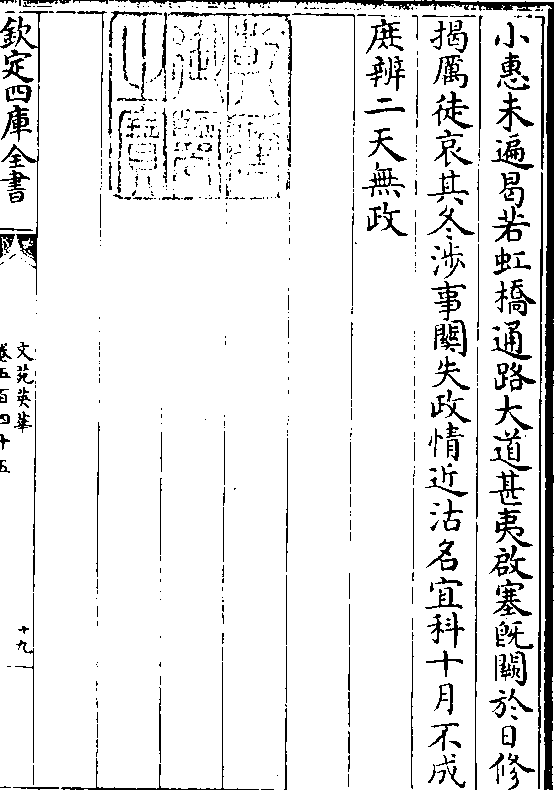 小惠未遍曷若虹橋通路大道甚夷啟塞既闕於日修
揭厲徒哀其冬涉事關失政情近沽名宜科十月不成
庶辨二天無政
欽定四庫全書
文苑英華
卷五百四十五
十九